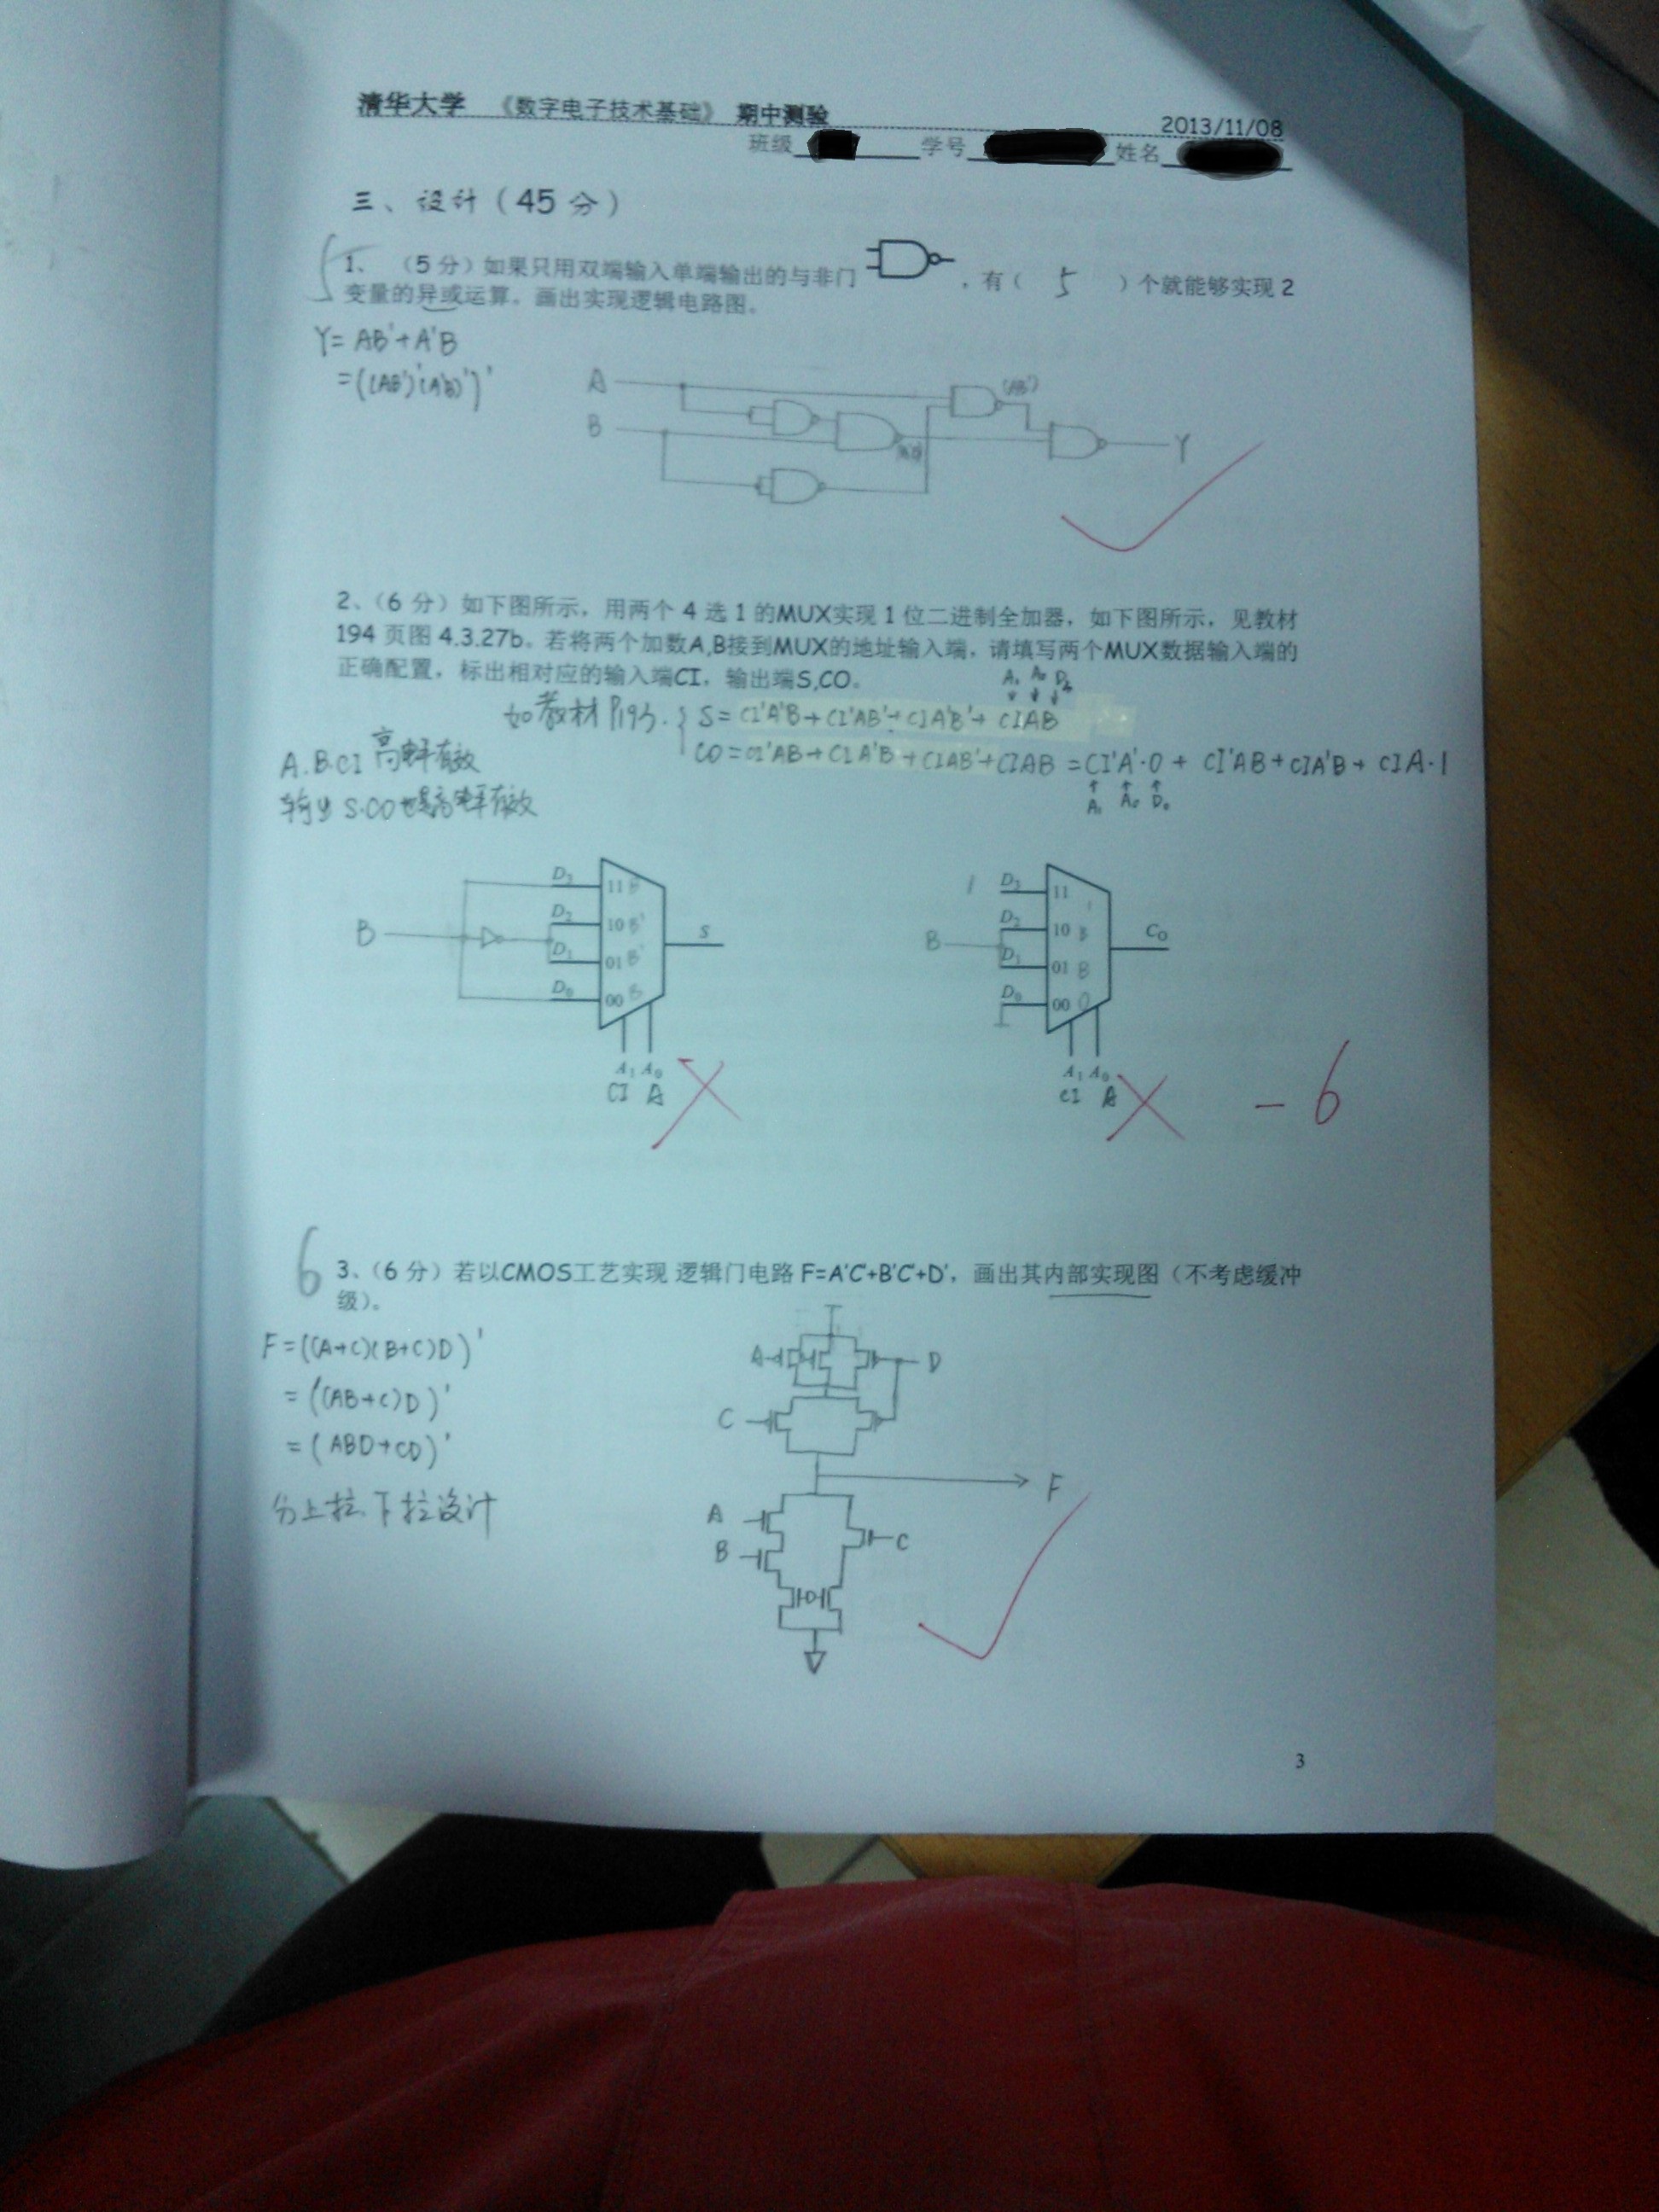 清华大学 《数字电子技术基础》 期中测验 2013/11/08
班级 学号 姓名
三、设计（45 分）
5
1、 （5 分）如果只用双端输入单端输出的与非门 ，有（ 5 ）个就能够实现 2
变量的异或运算。画出实现逻辑电路图。
Y= AB'+A'B
=((AB')'(A'B)')'
A
B
(AB')
Y
2、（6 分）如下图所示，用两个 4 选 1 的MUX实现 1 位二进制全加器，如下图所示，见教材
194 页图 4.3.27b。若将两个加数A,B接到MUX的地址输入端，请填写两个MUX数据输入端的
正确配置，标出相对应的输入端CI，输出端S,CO。
A₁ A₀ D₃
如教材P193. S= CI'A'B+CI'AB'+CIA'B'+CIAB
A.B.CI 高电平有效
CO=CI'AB+CIA'B+CIAB'+CIAB =CI'A'·0 + CI'AB+CIA'B+ CIA·1
A₁ A₀ D₀
输出 S.CO也是高电平有效
B
D₃ 11 B
D₂ 10 B'
D₁ 01 B'
D₀ 00 B
S
A₁ A₀
CI A
1 D₃ 11 1
D₂ 10 B
B
D₁ 01 B
D₀ 00 0
C₀
A₁ A₀
CI A
-6
6
3、（6 分）若以CMOS工艺实现 逻辑门电路 F=A'C'+B'C'+D'，画出其内部实现图（不考虑缓冲
级）。
F=((A+C)(B+C)D)'
=((AB+C)D)'
=(ABD+CD)'
分上拉下拉设计
A
D
C
F
A
B
C
D
3